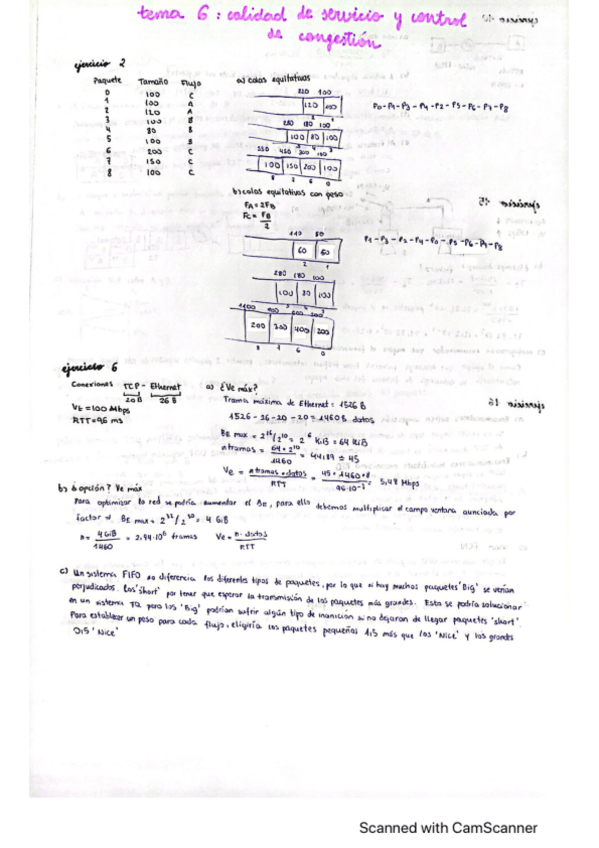 tema 6: calidad de servicio y control
de congestión
ejercicio 2
Paquete Tamaño Flujo
0 100 C
1 100 A
2 120 A
3 100 B
4 80 B
5 100 B
6 200 C
7 150 C
8 100 C
a) colas equitativas
220 100
120 100
280 180 100
100 80 100
550 450 300 100
100 150 200 100
8 7 6 0
P0-P1-P3-P4-P2-P5-P6-P7-P8
b) colas equitativas con peso
FA = 2FB
FC = FB/2
110 50
60 50
2 1
280 180 100
100 80 100
200 300 400 200
8 7 6 0
P1-P3-P2-P4-P0-P5-P6-P7-P8
ejercicio 6
Conexiones TCP - Ethernet
20 B 26 B
Vt = 100 Mbps
RTT = 96 ms
a) ¿Ve máx?
Trama máxima de Ethernet = 1526 B
1526 - 26 - 20 - 20 = 1460 B datos
BE max = 2^16/2^10 = 2^6 KiB = 64 KiB
n tramas = 64·2^10/1460 = 44,89 ≈ 45
Ve = n tramas·datos/RTT = 45·1460·8/96·10^-3 = 5,48 Mbps
b) ¿opción? Ve máx
Para optimizar la red se podría aumentar el BE, para ello debemos multiplicar el campo ventana anunciada por
factor BE max = 2^32/2^30 = 4 GiB
n = 4GiB/1460 = 2,94·10^6 tramas Ve = n·datos/RTT
c) Un sistema FIFO no diferencia los diferentes tipos de paquetes, por lo que si hay muchos paquetes 'Big' se verían
perjudicados. Los 'short' por tener que esperar la transmisión de los paquetes más grandes. Esto se podría solucionar
en un sistema pero los 'Big' podrían sufrir algún tipo de inanición si no dejaran de llegar paquetes 'short'.
Para establecer un peso para cada flujo, eligiría los paquetes pequeños 1,5 más que los 'Nice' y los grandes
0,5 'Nice'
Scanned with CamScanner